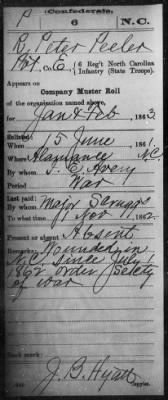 P
Confederate.
6
N.C.
R. Peter Peeler
Pvt, Co. E, 6 Reg't North Carolina
Infantry (State Troops).
Appears on
Company Muster Roll
of the organization named above,
for Jan & Feb, 1863.
Enlisted:
When 15 June, 1861.
Where Alamance N.C.
By whom I. E. Avery
Period War
Last paid:
By whom Major
To what time Nov 1, 1862.
Present or absent Absent
Remarks: Wounded in
N.C. since July 1
1862 order
of war
Book mark:
J. B. Hyatt
Copyist.